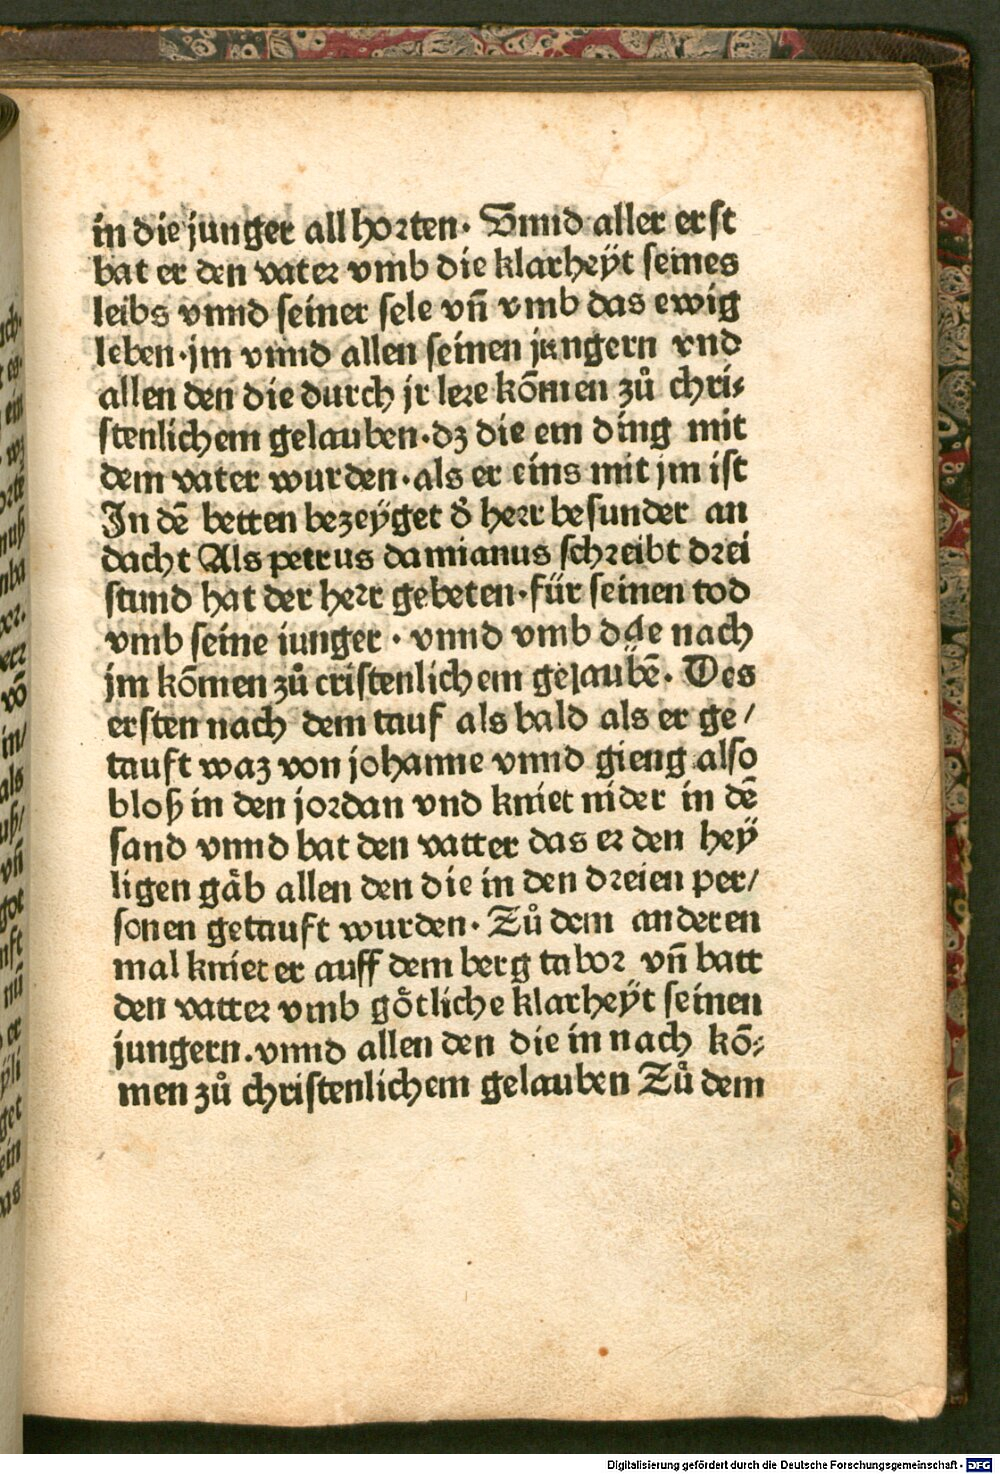 in die junger all horten. Vnnd aller erst
bat er den vater vmb die klarheÿt seines
leibs vnnd seiner sele vñ vmb das ewig
leben·jm vnnd allen seinen jungern vnd
allen den die durch jr lere kõmen zů chri⸗
stenlichem gelauben·dz die ein ding mit
dem vater wurden·als er eins mit jm ist
In dẽ betten bezeÿget d̕ herr besunder an
dacht Als petrus damianus schreibt drei
stund hat der herr gebeten·für seinen tod
vmb seine iunger · vnnd vmb d die nach
jm kõmen zů cristenlichem gelaubẽ. Des
ersten nach dem tauf als bald als er ge/
tauft waz von johanne vnnd gieng also
bloß in den jordan vnd kniet nider in dẽ
sand vnnd bat den vatter das er den heÿ
ligen gäb allen den die in den dreien per/
sonen getauft wurden· Zů dem anderen
mal kniet er auff dem berg tabor vñ batt
den vatter vmb götliche klarheÿt seinen
jungern.vnnd allen den die in nach kõ⸗
men zů christenlichem gelauben Zů dem
Digitalisierung gefördert durch die Deutsche Forschungsgemeinschaft - DFG